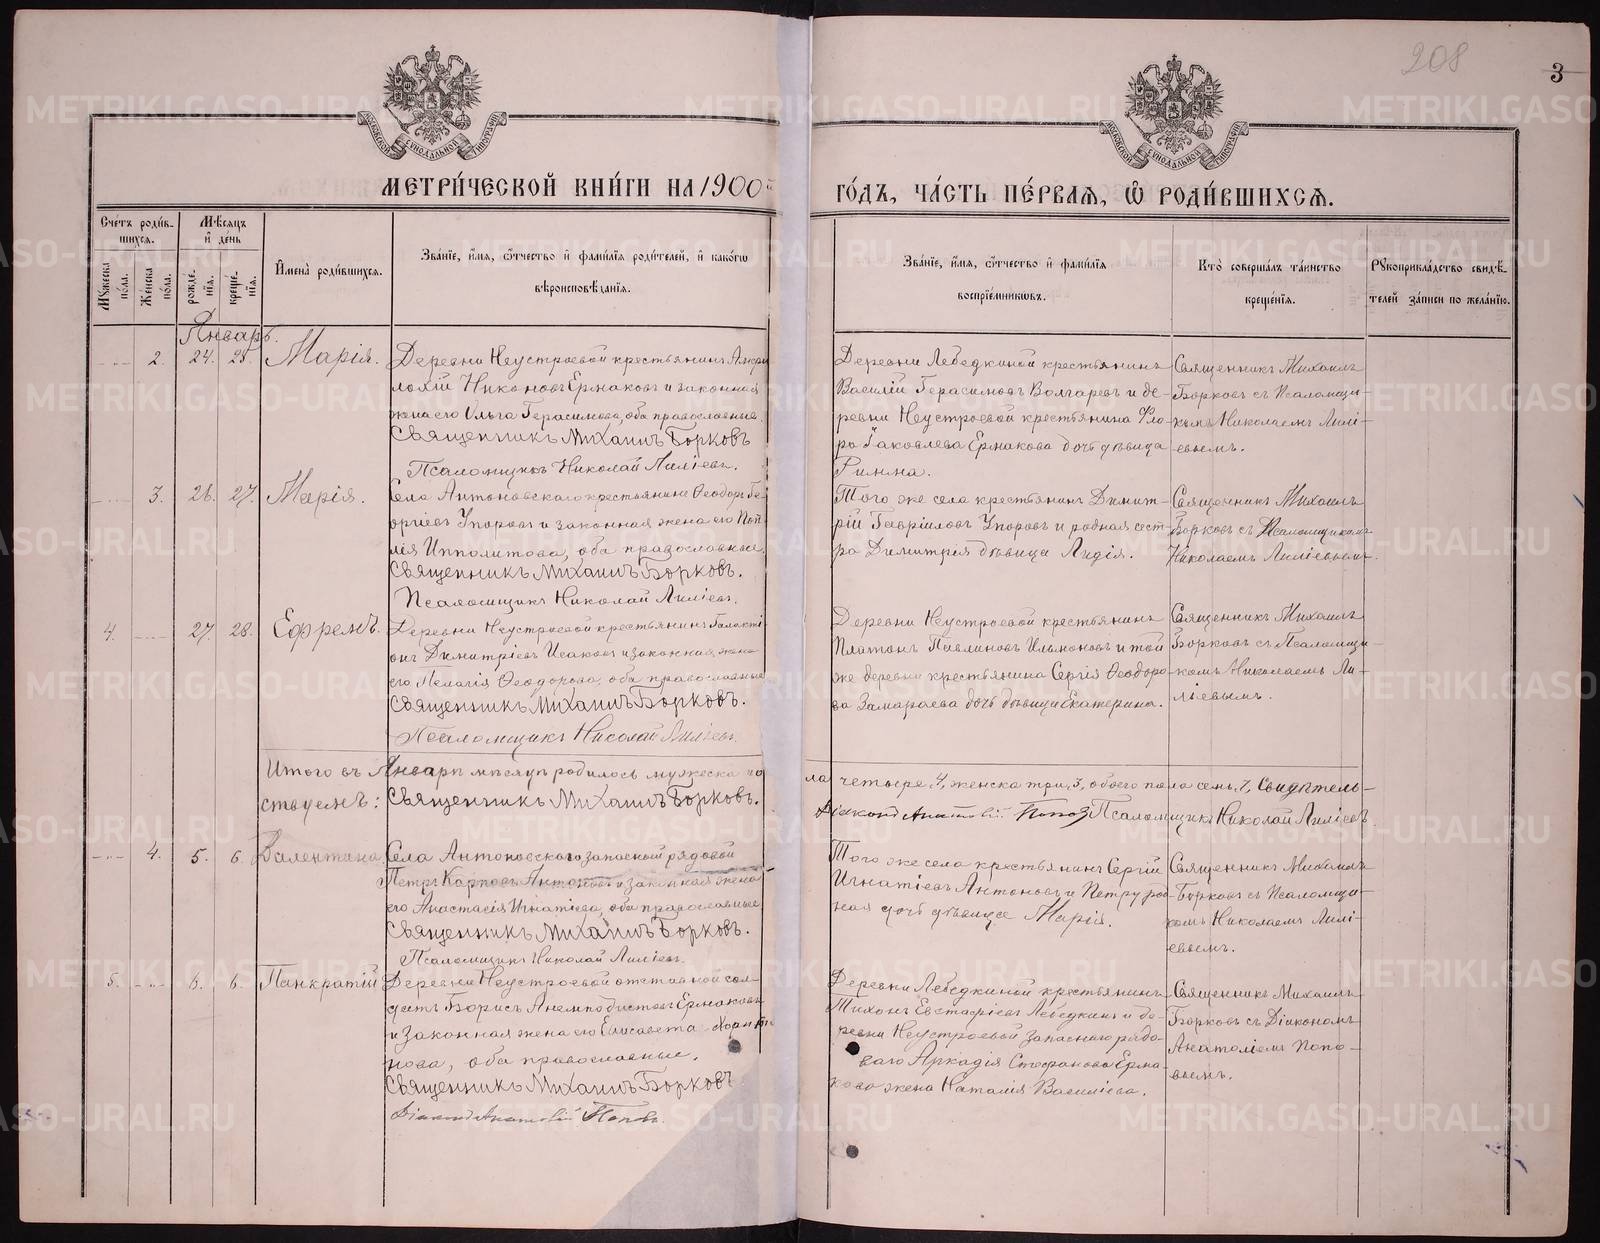 208
3
МЕТРИЧЕСКОЙ КНИГИ НА 1900
ГОДЪ, ЧАСТЬ ПЕРВАЯ, Ѡ РОДИВШИХСЯ.
МОСКОВСКОЙ СѴНОДАЛЬНОЙ ТИПОГРАФІИ
МОСКОВСКОЙ СѴНОДАЛЬНОЙ ТИПОГРАФІИ
Счетъ родившихся.
Мужеска пола.
Женска пола.
Мѣсяцъ и день
рожденія.
крещенія.
Имена родившихся.
Званіе, имя, отчество и фамилія родителей, и какогѡ
вѣроисповѣданія.
Званіе, имя, отчество и фамилія
воспріемниковъ.
Кто совершалъ таинство
крещенія.
Рукоприкладство свидѣ-
телей записи по желанію.
Январь.
2. 24. 25. Марія.
Деревни Неустроевой крестьянинъ Амфи-
лохій Никоновъ Ермаковъ и законная
жена его Ольга Герасимова, оба православные.
Священникъ Михаилъ Борковъ
Псаломщикъ Николай Лиліевъ.
Деревни Лебедкиной крестьянинъ
Василій Герасимовъ Волгаревъ и де-
ревни Неустроевой крестьянина Фло-
ра Іаковлева Ермакова дочь дѣвица
Римма.
Священникъ Михаилъ
Борковъ съ Псаломщи-
комъ Николаемъ Лилі-
евымъ.
3. 26. 27. Марія.
Села Антоновскаго крестьянинъ Ѳеодоръ Ге-
оргіевъ Упоровъ и законная жена его
Ипполитова, оба православные.
Священникъ Михаилъ Борковъ.
Псаломщикъ Николай Лиліевъ.
Того же села крестьянинъ Димит-
рій Гавріиловъ Упоровъ и родная сест-
ра Димитрія дѣвица Лидія.
Священникъ Михаилъ
Борковъ съ Псаломщикомъ
Николаемъ Лиліевымъ.
4. 27. 28. Ефремъ.
Деревни Неустроевой крестьянинъ Галакті-
онъ Димитріевъ Исаковъ и законная жена
его Пелагія Ѳеодорова, оба православные
Священникъ Михаилъ Борковъ.
Псаломщикъ Николай Лиліевъ.
Деревни Неустроевой крестьянинъ
Платонъ Павлиновъ и той
же деревни крестьянина Сергія Ѳеодоро-
ва Замараева дочь дѣвица Екатерина.
Священникъ Михаилъ
Борковъ съ Псаломщи-
комъ Николаемъ Ли-
ліевымъ.
Итого въ Январѣ мѣсяцѣ родилось мужеска по
ла четыре, 4, женска три, 3, обоего пола семь, 7, Свидѣтель-
ствуемъ: Священникъ Михаилъ Борковъ.
Діаконъ Анатолій Поповъ Псаломщикъ Николай Лиліевъ.
4. 5. 6. Валентина
Села Антоновскаго запасной рядовой
Петръ Карповъ Антоновъ и законная жена
его Анастасія Игнатіева, оба православные
Священникъ Михаилъ Борковъ.
Псаломщикъ Николай Лиліевъ.
Того же села крестьянинъ Сергій
Игнатіевъ Антоновъ и Петру род-
ная дочь дѣвица Марія.
Священникъ Михаилъ
Борковъ съ Псаломщи-
комъ Николаемъ Лилі-
евымъ.
5. 6. 6. Панкратій
Деревни Неустроевой отставной сол-
датъ Борисъ Анемподистовъ Ермаковъ
и законная жена его Елисавета Харито-
нова, оба православные.
Священникъ Михаилъ Борковъ.
Діаконъ Анатолій Поповъ.
Деревни Лебедкиной крестьянинъ
Тихонъ Евстафіевъ Лебедкинъ и де-
ревни Неустроевой запаснаго рядо-
ваго Аркадія Стефанова Ерма-
кова жена Наталія Василіева.
Священникъ Михаилъ
Борковъ съ Діакономъ
Анатоліемъ Попо-
вымъ.
METRIKI.GASO-URAL.RU